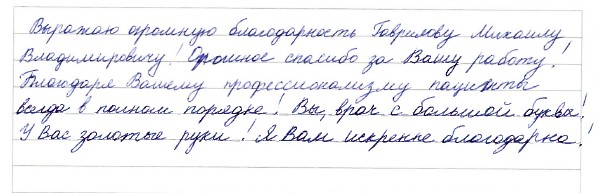 Выражаю огромную благодарность Гаврилову Михаилу
Владимировичу! Огромное спасибо за Вашу работу!
Благодаря Вашему профессионализму пациенты
всегда в полном порядке! Вы, врач с большой буквы!
У Вас золотые руки! Я Вам искренне благодарна!